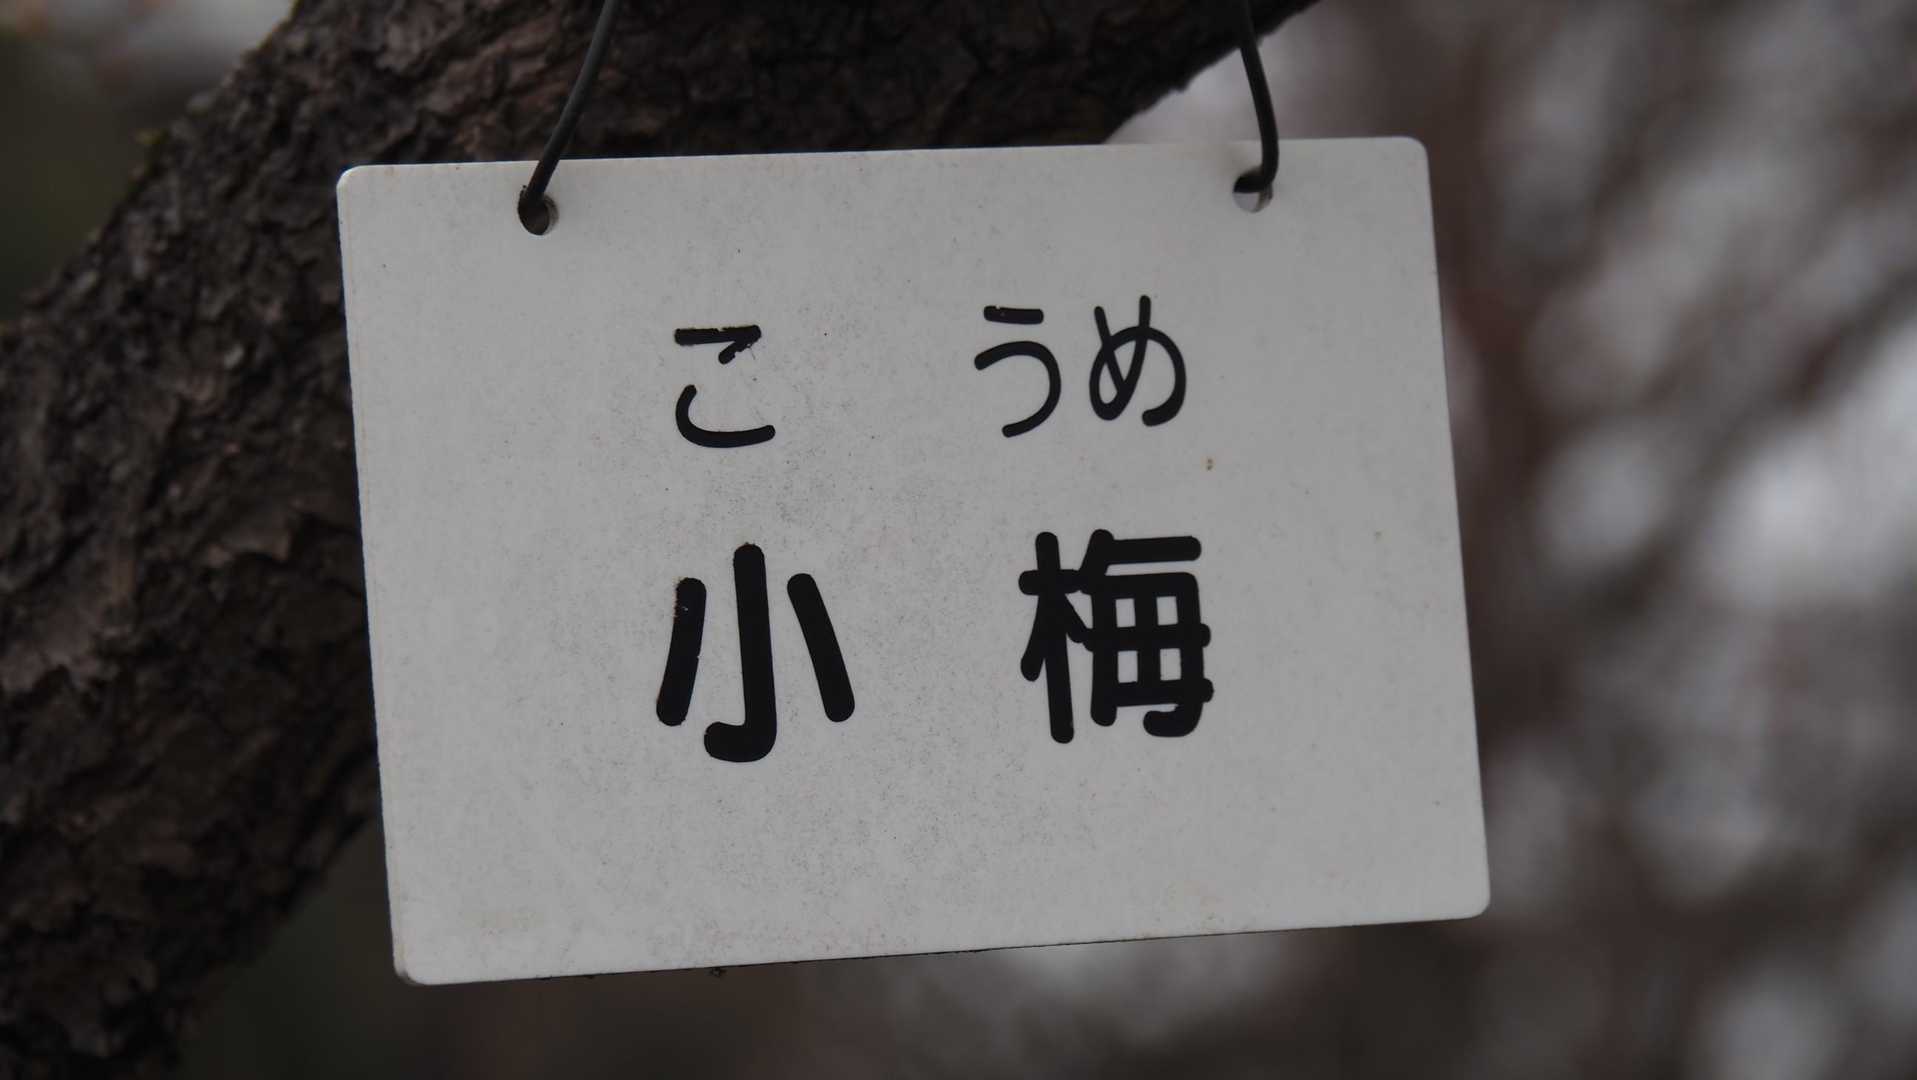 こ うめ
小 梅